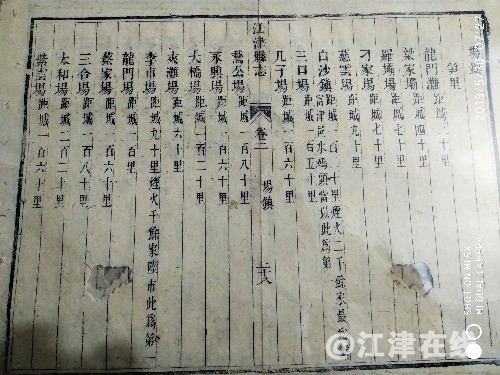 笋里
龍門灘距城三十里
梁家場距城四十里
羅塘場距城七十里
刁家場距城七十里
慈雲場距城九十里
白沙鎮距城一百二十里煙火二千餘家
富津河水碼頭當以此為第
三口場距城一百五十里
几子場距城一百六十里
江津縣志
卷二
場鎮
鶩公場距城一百八十里
永興場距城一百六十里
大橋場距城一百二十里
夾灘場距城六十里
李市場距城九十里煙火千餘家陸市此為第一
龍門場距城一百里
蔡家場距城一百六十里
三合場距城一百八十里
太和場距城二百二十里
紫雲場距城一百六十里
SHOT ON MI 5X
MI DUAL CAMERA
@江津在线